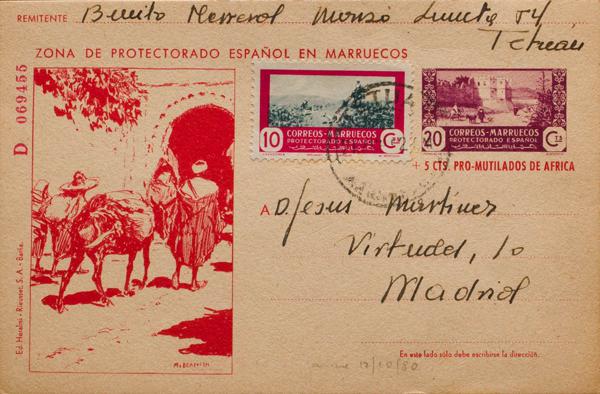 REMITENTE Benito Merrerol Monzó Luneta 54
Tetuán
ZONA DE PROTECTORADO ESPAÑOL EN MARRUECOS
D 069455
10 CTS
CORREOS-MARRUECOS
PROTECTORADO ESPAÑOL
20 CTS
CORREOS-MARRUECOS
PROTECTORADO ESPAÑOL
+ 5 CTS. PRO-MUTILADOS DE AFRICA
A D. Jesus Martinez
Virtudes, 10
Madrid
Ed. Heralmi - Rieusset, S. A. - Barna.
M. BERTUCHI
En este lado sólo debe escribirse la dirección.
12/10/50